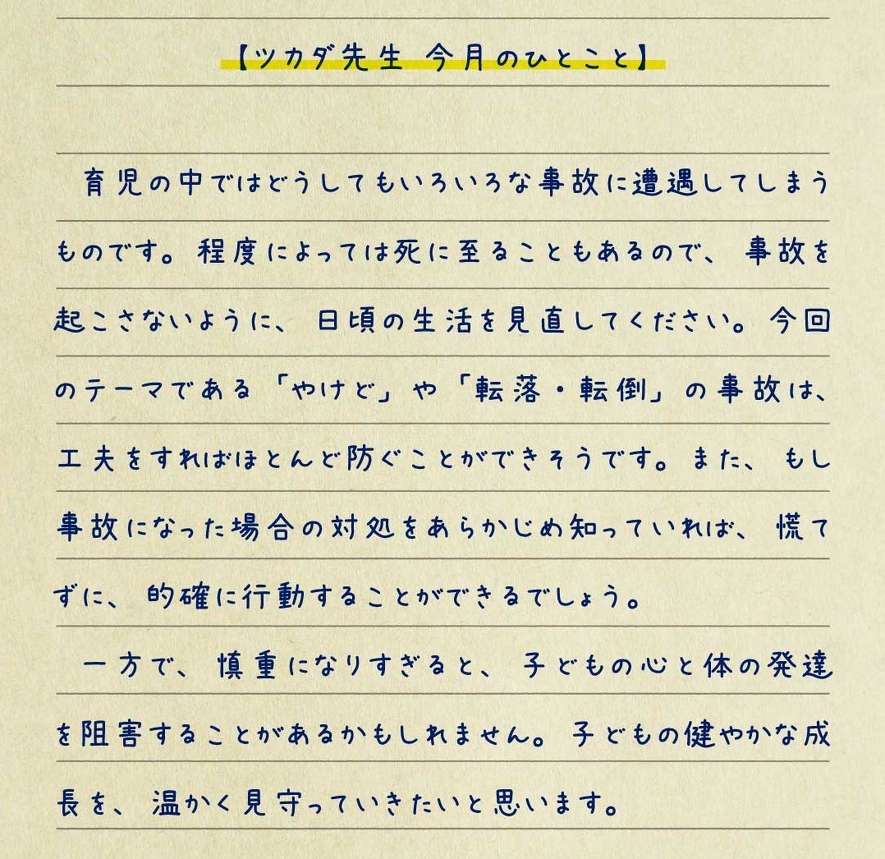 【ツカダ先生 今月のひとこと】
育児の中ではどうしてもいろいろな事故に遭遇してしまう
ものです。程度によっては死に至ることもあるので、事故を
起こさないように、日頃の生活を見直してください。今回
のテーマである「やけど」や「転落・転倒」の事故は、
工夫をすればほとんど防ぐことができそうです。また、もし
事故になった場合の対処をあらかじめ知っていれば、慌て
ずに、的確に行動することができるでしょう。
一方で、慎重になりすぎると、子どもの心と体の発達
を阻害することがあるかもしれません。子どもの健やかな成
長を、温かく見守っていきたいと思います。